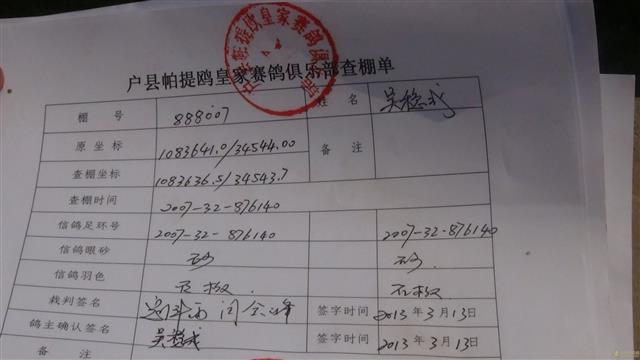 户县帕提欧皇家赛鸽俱乐部
户县帕提鸥皇家赛鸽俱乐部查棚单
棚号 888007 姓名 吴稳武
原坐标 1083641.0/34544.00 备注
查棚坐标 1083636.5/34543.7
查棚时间 2007-32-876140
信鸽足环号 2007-32-876140 2007-32-876140
信鸽眼砂 砂 砂
信鸽羽色 石板 石板
裁判签名 签字时间 2013年3月13日
鸽主确认签名 签字时间 2013年3月13日
备注